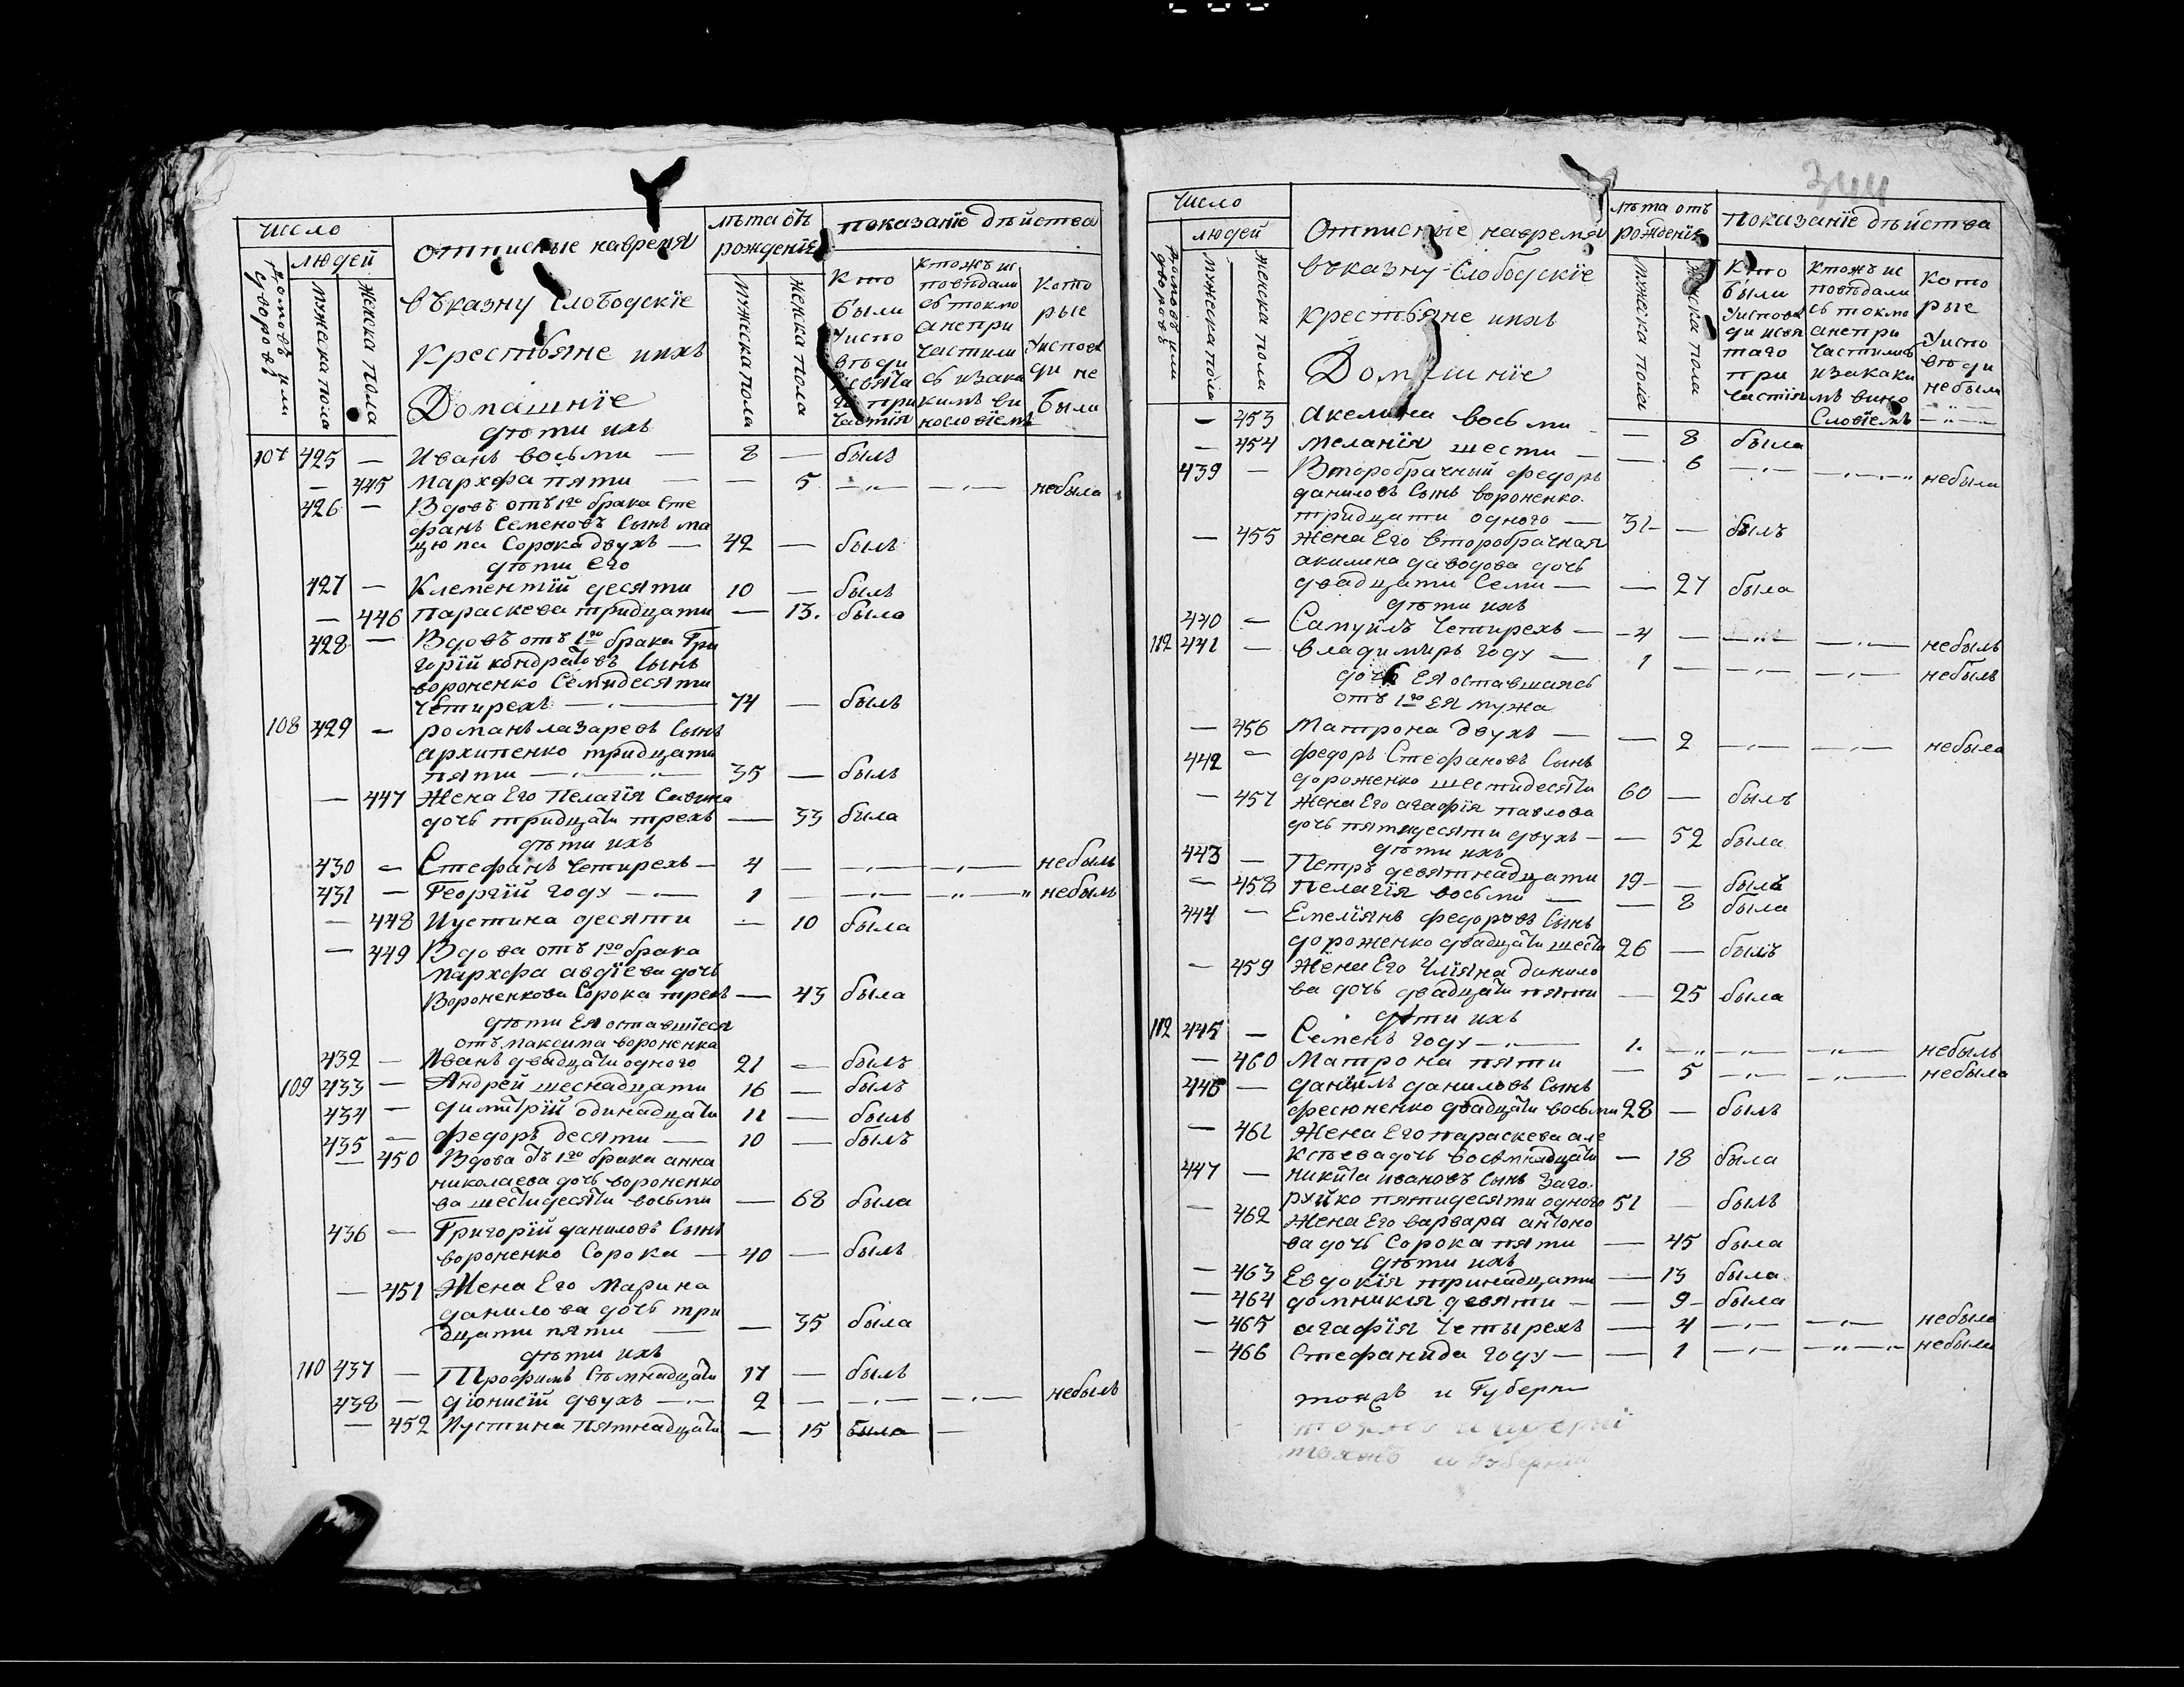 Число
людей
домовъ или дворовъ
мужеска пола
женска пола
отписные навремя
въказну Слободскіе
крестьяне ихъ
Домашніе
лѣта отъ
рожденія
мужеска пола
женска пола
показаніе дѣйства
кто
были
Уиспо
вѣди
исвята
го при
частія
ктожъ ис
повѣдали
сь токмо
анепри
частили
сь изака
кимъ ви
нословіемъ
кото
рые
Уиспов
ди не
были
дѣти ихъ
107 425 — Иванъ восьми — 8 — былъ
— 445 Мархфа пяти — — 5 —„— —„— небыла
426 — Вдовъ отъ 1го брака Сте
фанъ Семеновъ Сынъ ма
цюпа Сорока двухъ — 42 — былъ
дѣти Его
427 — Клементій десяти 10 — былъ
— 446 Параскева тридцати — 13. была
428 — Вдовъ отъ 1го брака Гри
горій кондратовъ Сынъ
вороненко Семидесяти
четирехъ —„— 74 — былъ
108 429 — романъ лазаревъ Сынъ
архипенко тридцати
пяти —„—„— 35 — былъ
— 447 Жена Его Пелагія Савина
дочь тридцати трехъ — 33 была
дѣти ихъ
430 — Стефанъ четирехъ — 4 — —„— —„— небылъ
431 — Георгій году —„— 1 — —„— —„—„ небылъ
— 448 Иустина десяти — 10 была
— 449 Вдова отъ 1го брака
Мархфа авдіева дочь
Вороненкова Сорока трехъ — 43 была
дѣти Ея оставшіеся
отъ Максима вороненка
432 — Иванъ двадцати одного 21 — былъ
109 433 — Андрей шеснадцати 16 — былъ
434 — димитрій одинадцати 11 — былъ
435 — федоръ десяти — 10 — былъ
— 450 Вдова отъ 1го брака анна
николаева дочь вороненко
ва шестидесяти восьми — 68 была
436 — Григорій даниловъ Сынъ
вороненко Сорока — 40 — былъ
— 451 Жена Его Марина
данилова дочь три
дцати пяти — — 35 была
дѣти ихъ
110 437 — Трофимъ Семнадцати 17 — былъ
438 — діонисій двухъ —„— 2 — —„— —„— небылъ
— 452 Иустина пятнадцати — 15 была —
344
Число
людей
домовъ или дворовъ
мужеска пола
женска пола
Отписніе навремя
въказну Слободскіе
крестьяне ихъ
Домашніе
лѣта отъ
рожденія
мужеска пола
женска пола
показаніе дѣйства
кто
были
Уиспов
ди исвя
таго
при
частія
ктожъ ис
повѣдали
сь токмо
анепри
частились
изакаки
мъ вино
Словіемъ
кото
рые
Уиспо
вѣди
небыли
—„—
— 453 Акелина восьми — — 8 была
— 454 Меланія шести — — 6 —„— —„—„ небыла
439 — Второбрачный федоръ
даниловъ Сынъ вороненко
тридцати одного — 31 — былъ
— 455 Жена Его второбрачная
акилина давидова дочь
двадцати Семи — — 27 была
дѣти ихъ
440 — Самуилъ четирехъ — 4 — —„— —„— небылъ
112 441 — владимиръ году — 1 — —„— —„— небылъ
дочь Ея оставшаясь
отъ 1го Ея мужа
— 456 Матрона двухъ — — 2 —„— —„— небыла
442 — федоръ Стефановъ Сынъ
дороженко шестидесяти 60 — былъ
— 457 Жена Его агафія павлова
дочь пятидесяти двухъ — — 52 была
дѣти ихъ
443 — Петръ девятнадцати 19 — былъ
— 458 Пелагія восьми — — 8 была
444 — Емеліянъ федоровъ Сынъ
дороженко двадцати шести 26 — былъ
— 459 Жена Его Уліяна данило
ва дочь двадцати пяти — 25 была
дѣти ихъ
112 445 — Семенъ году —„— 1. —„— —„— —„— небылъ
— 460 Матрона пяти — 5 —„— —„— небыла
446 — даніилъ даниловъ Сынъ
фесюненко двадцати восьми 28 — былъ
— 461 Жена Его параскева але
ксѣева дочь восемнадцати — 18 была
447 — никита ивановъ Сынъ заго
руйко пятидесяти одного 51 — былъ
— 462 Жена Его варвара антоно
ва дочь Сорока пяти — 45 была
дѣти ихъ
— 463 Евдокія тринадцати — 13 была
— 464 домникія девяти — — 9 была
— 465 агафія четырехъ — 4 —„— —„— небыла
— 466 Стефанида году — — 1 —„— —„—„ небыла
и Губерни
и Губерній